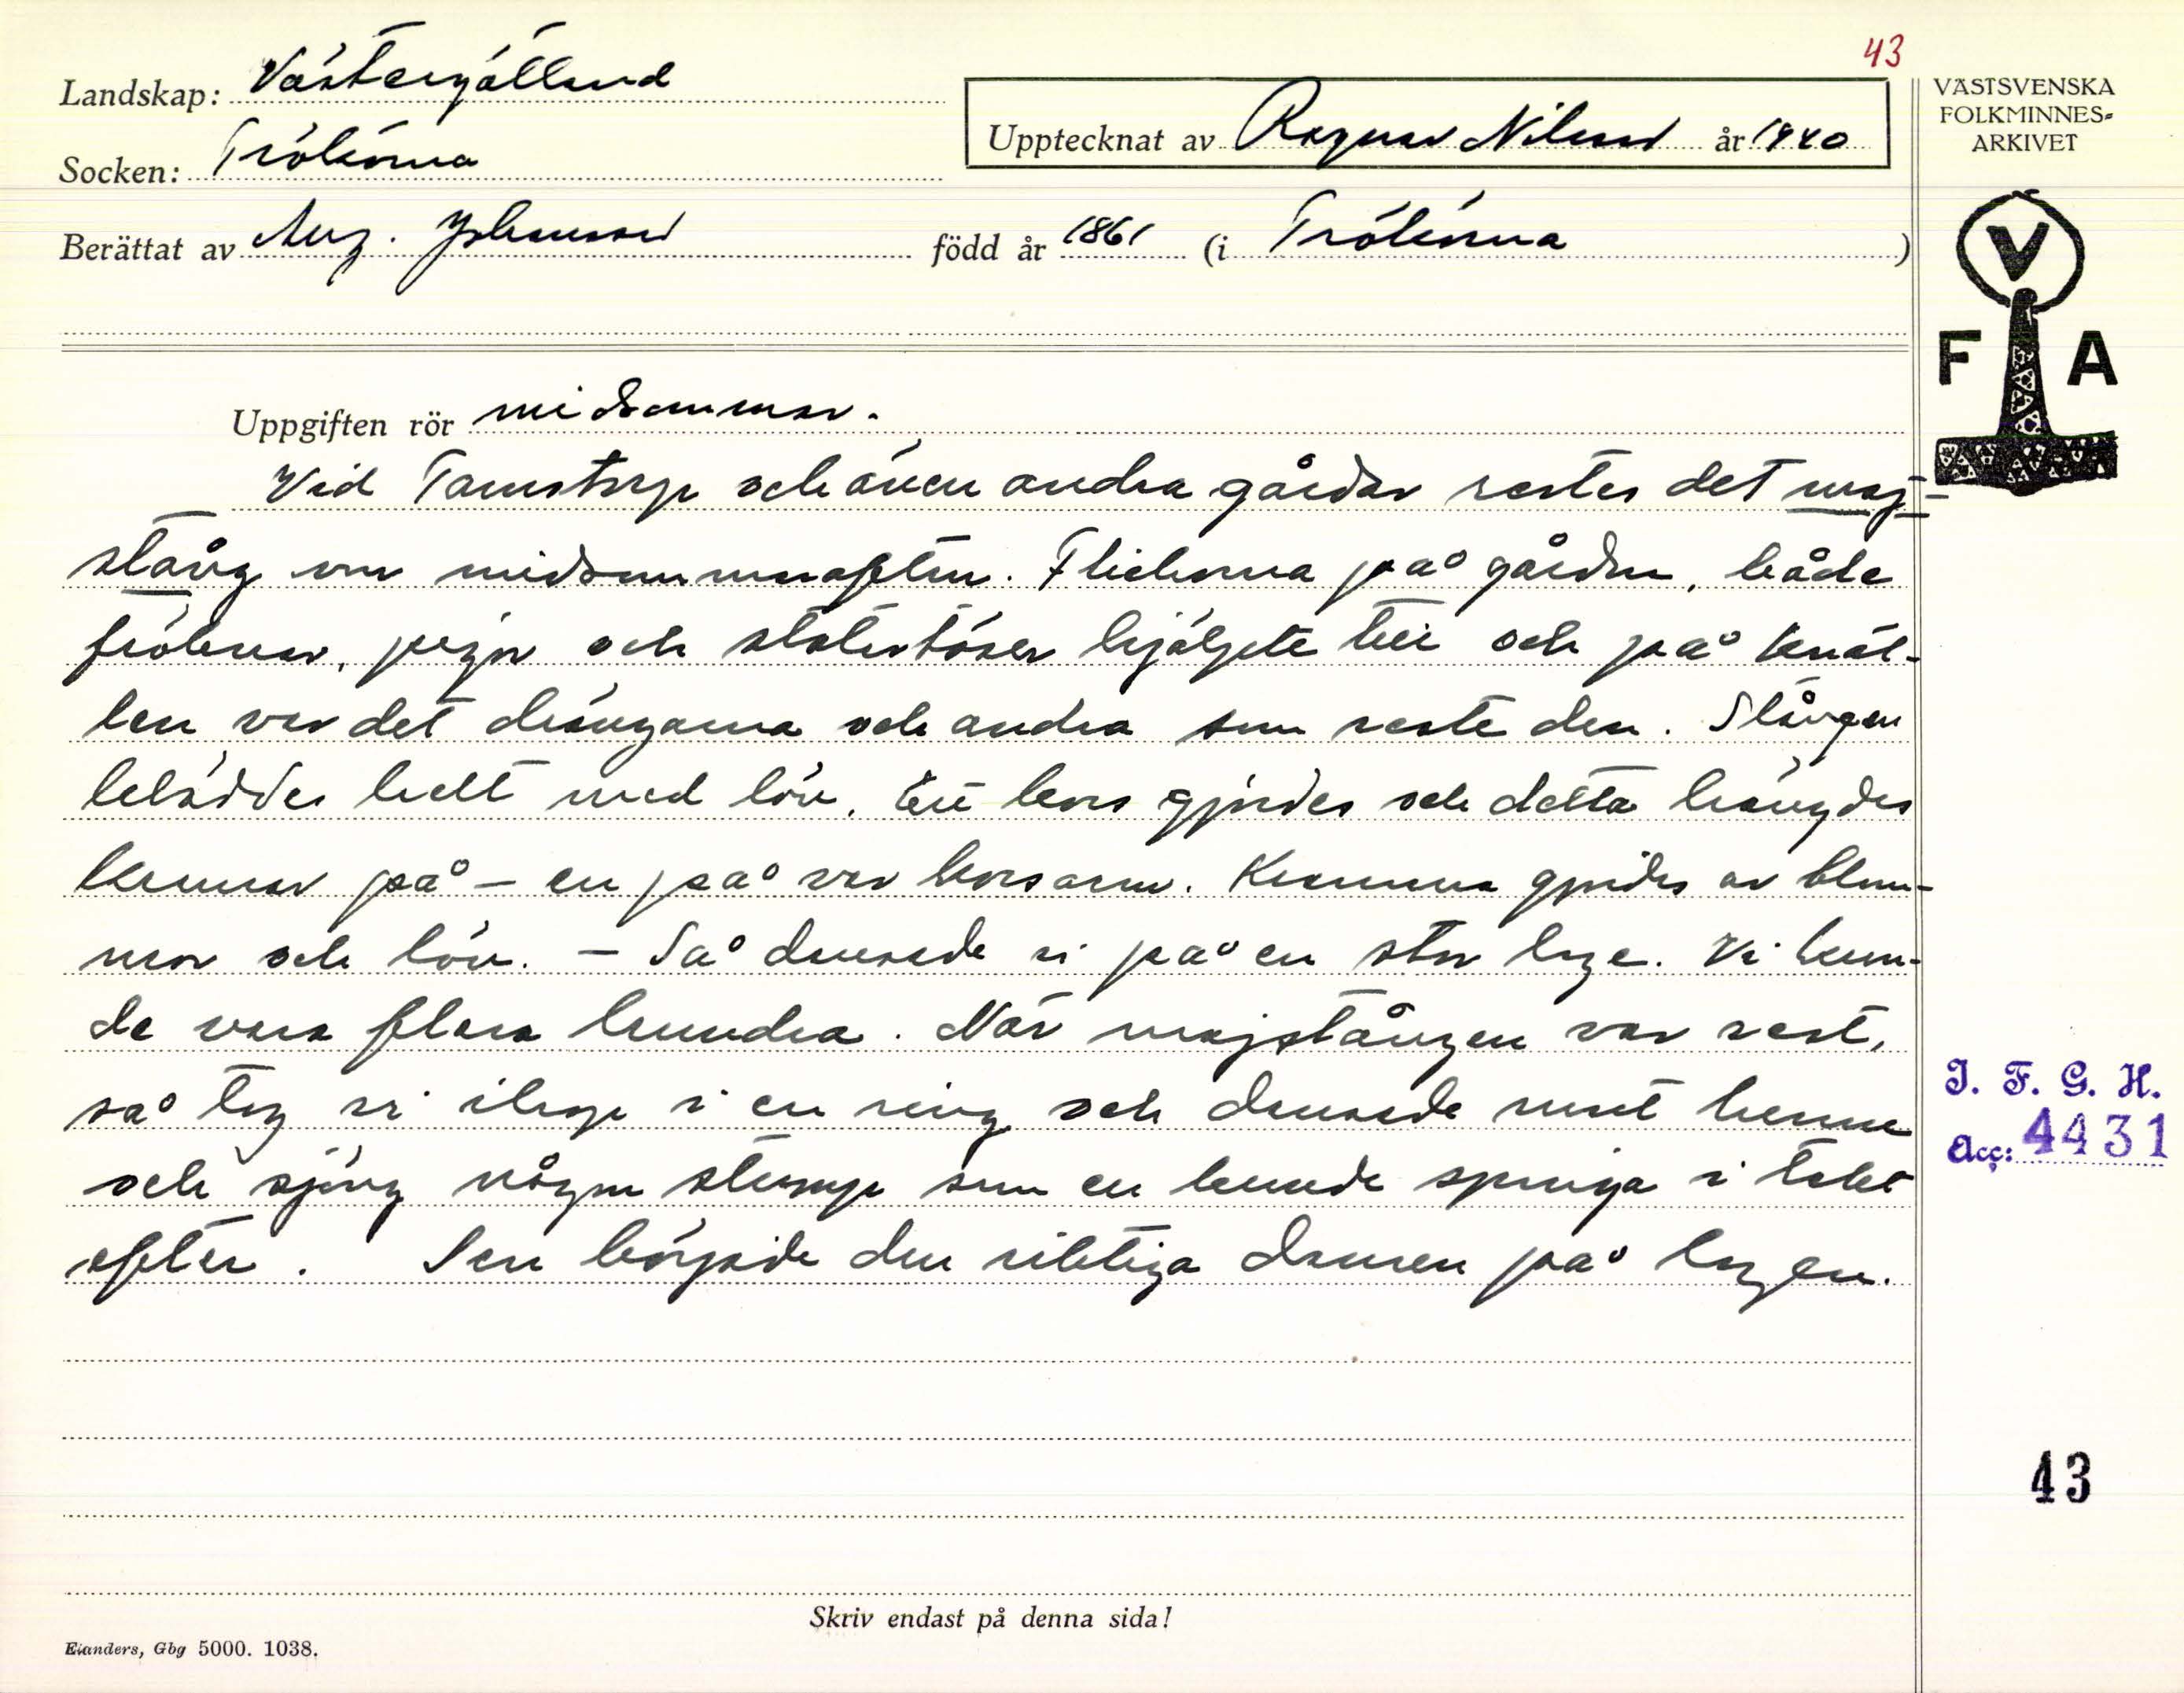 43
Landskap: Västergötland
Upptecknat av Ragnar Nilsson år 1940
VÄSTSVENSKA
FOLKMINNES-
ARKIVET
Socken: Trökörna
Berättat av Aug. Johansson född år 1861 (i Trökörna)
V
F A
Uppgiften rör midsommar.
Vid Tamstorp och även andra gårdar restes det maj-
stång om midsommarafton. Flickorna på gården, både
fröknar, pigor och statartöser hjälpte till och på kväl-
len var det drängarna och andra som reste den. Stången
bekläddes helt med löv. Ett kors gjordes och detta hängdes
kransar på – en på var korsarm. Kransarna gjordes av blom-
mor och löv. – Så dansade vi på en stor loge. Vi kun-
de vara flera hundra. När majstången var rest,
så tog vi ihop i en ring och dansade runt henne
och sjöng någon stump som en kunde springa i takt
efter. Sen började den riktiga dansen på logen.
I. F. G. H.
Acc: 4431
43
Skriv endast på denna sida!
Elanders, Gbg 5000. 1038.